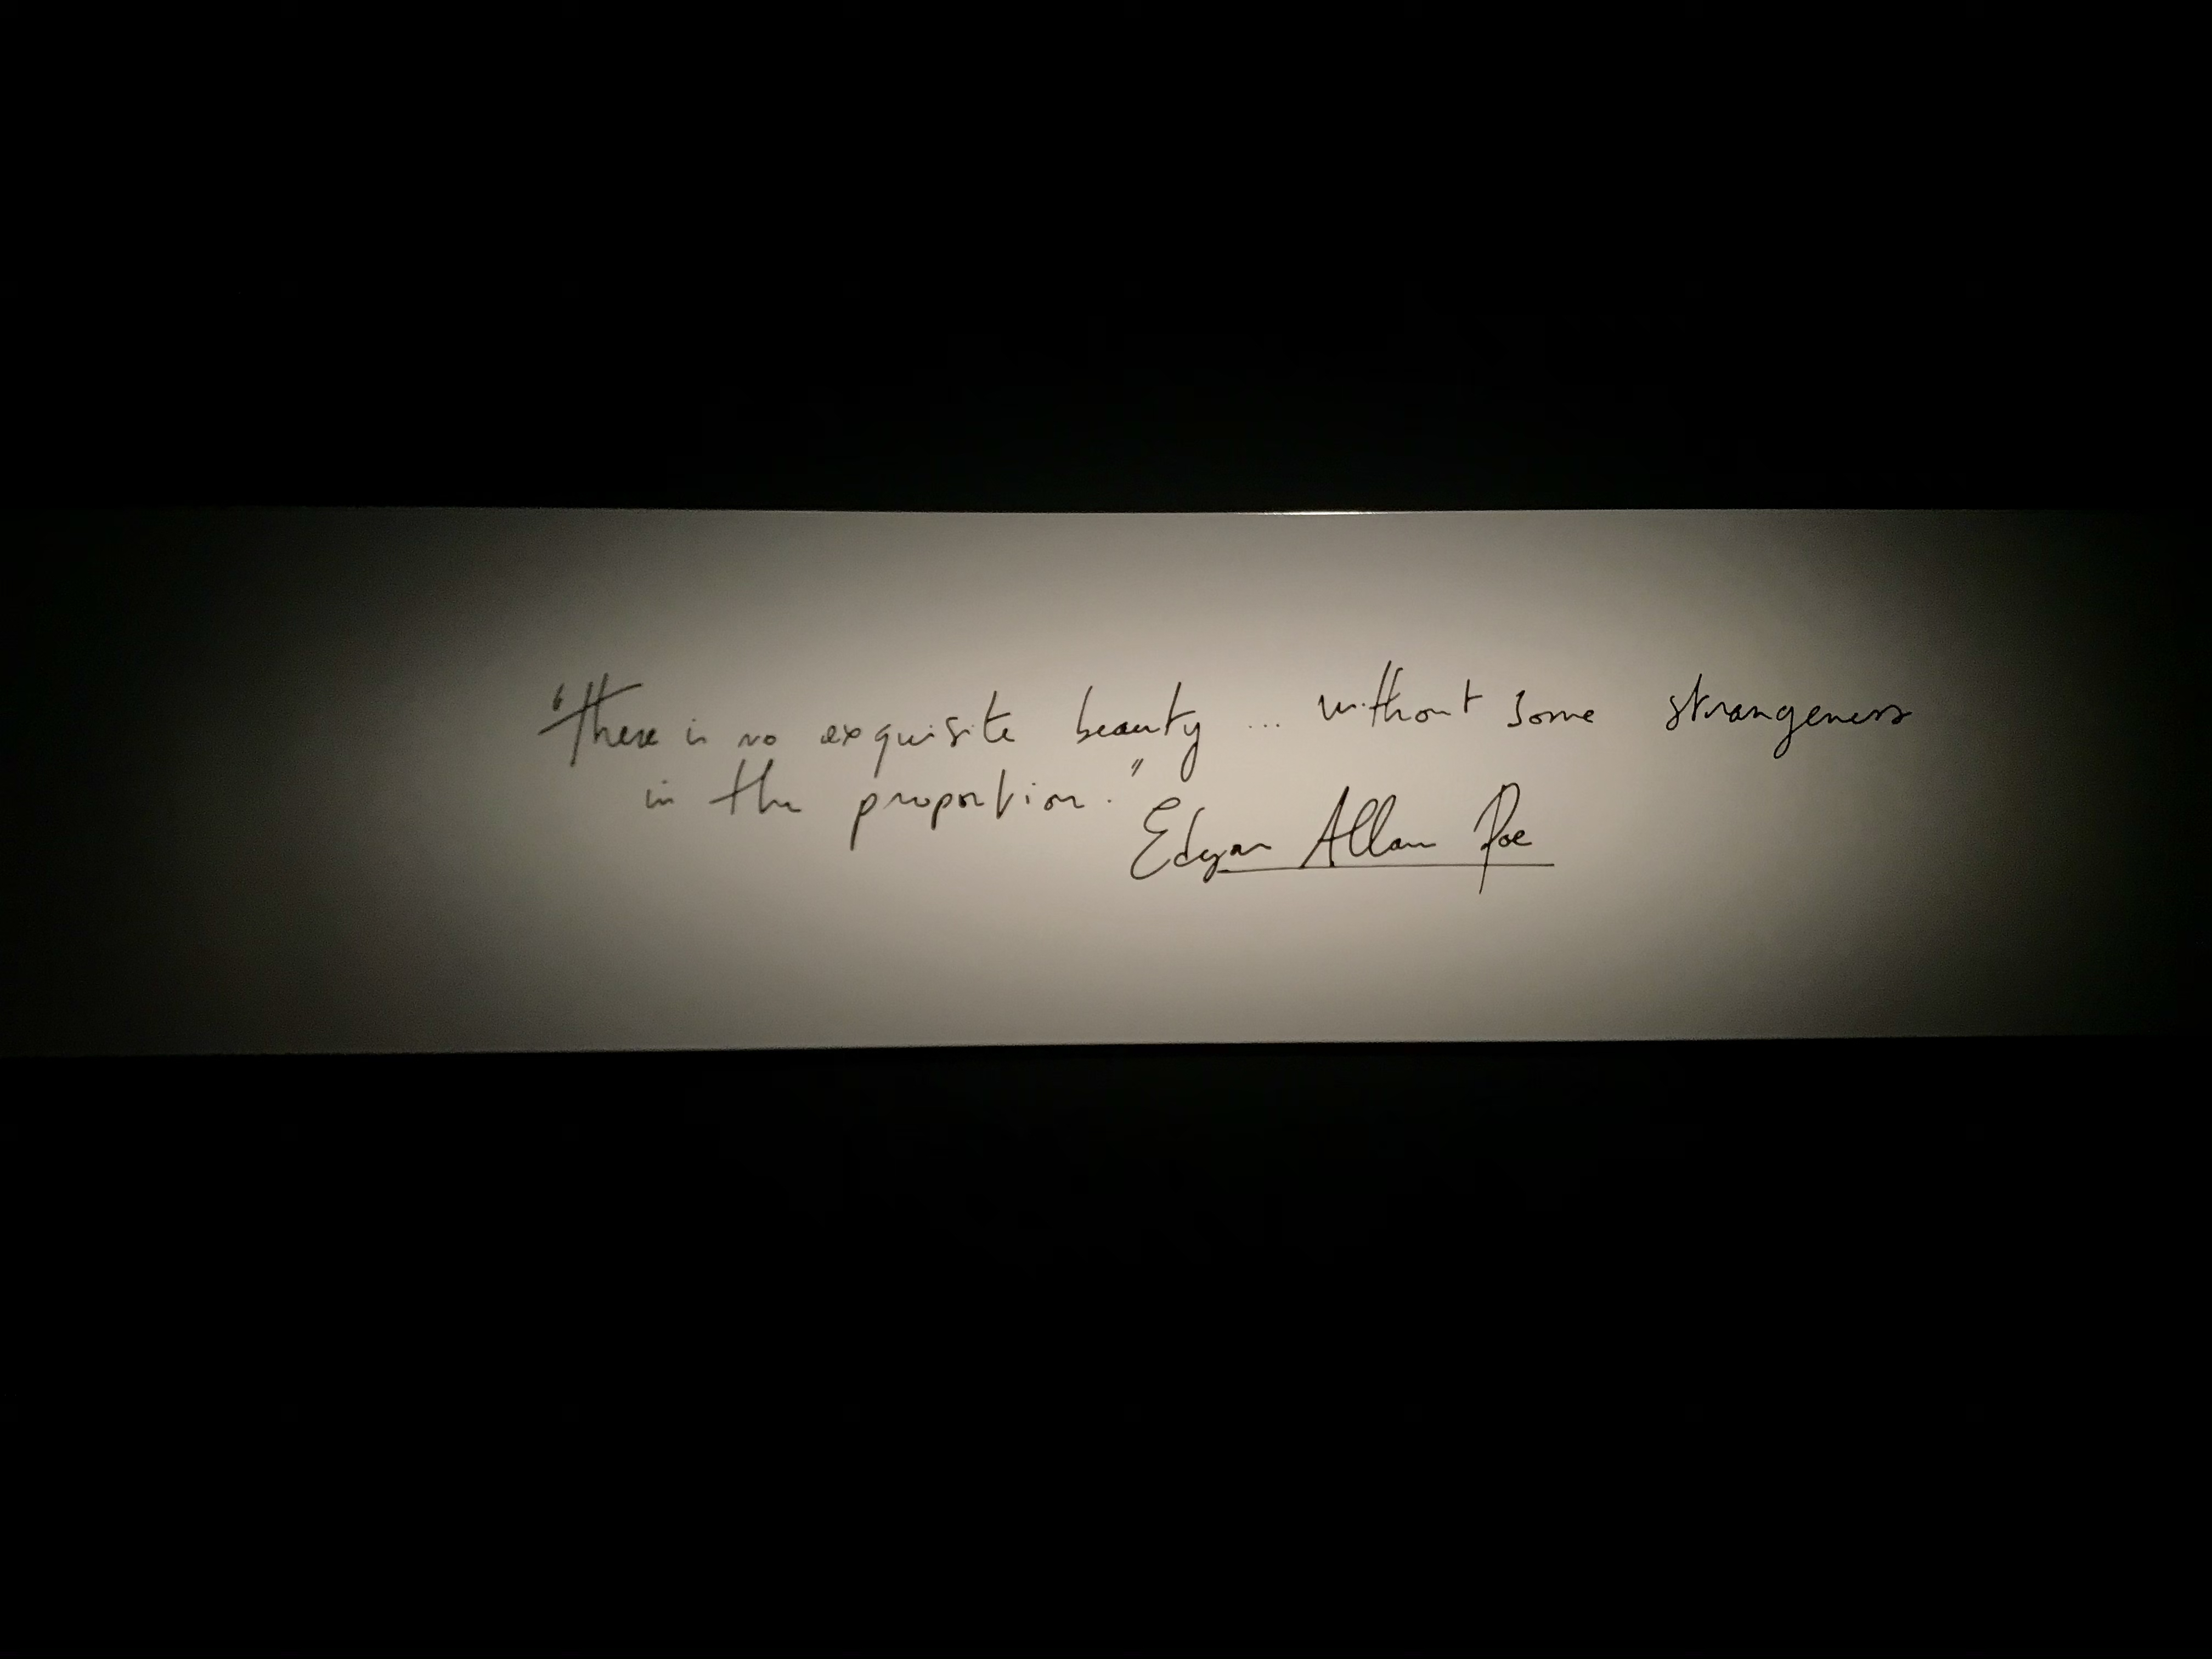 "There is no exquisite beauty ... without some strangeness
in the proportion."
Edgar Allan Poe